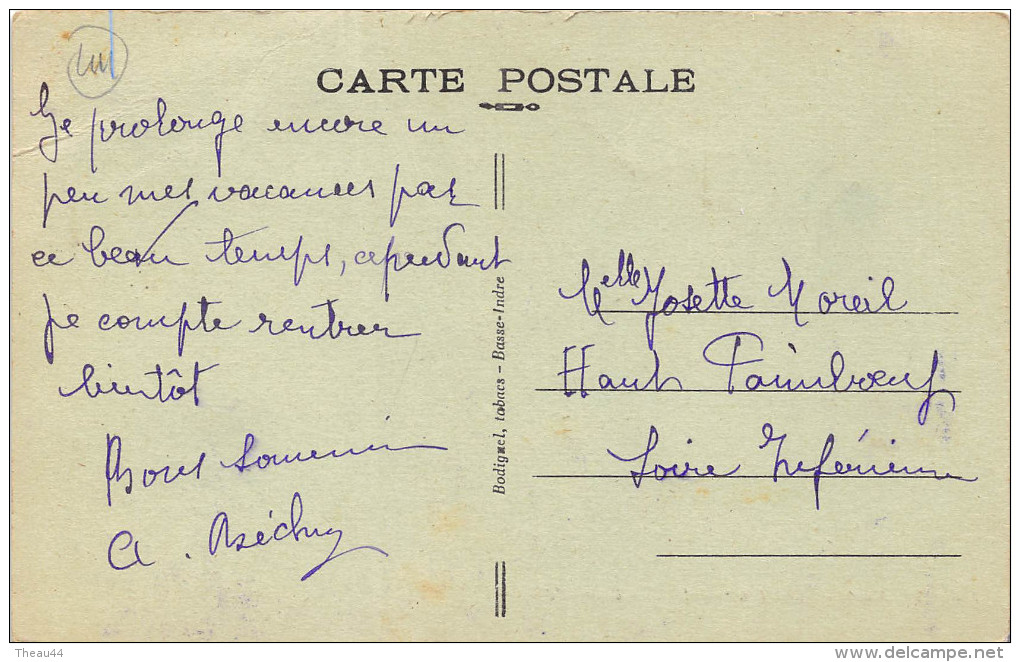 CARTE POSTALE
Je prolonge encore un
peu mes vacances par
ce beau temps, cependant
je compte rentrer
bientôt
Bons Souvenirs
A.
Bodiguel, tabacs - Basse-Indre
Melle Josette Moreil
Haut Paimboeuf
Loire Inférieure
Theau44
www.delcampe.net